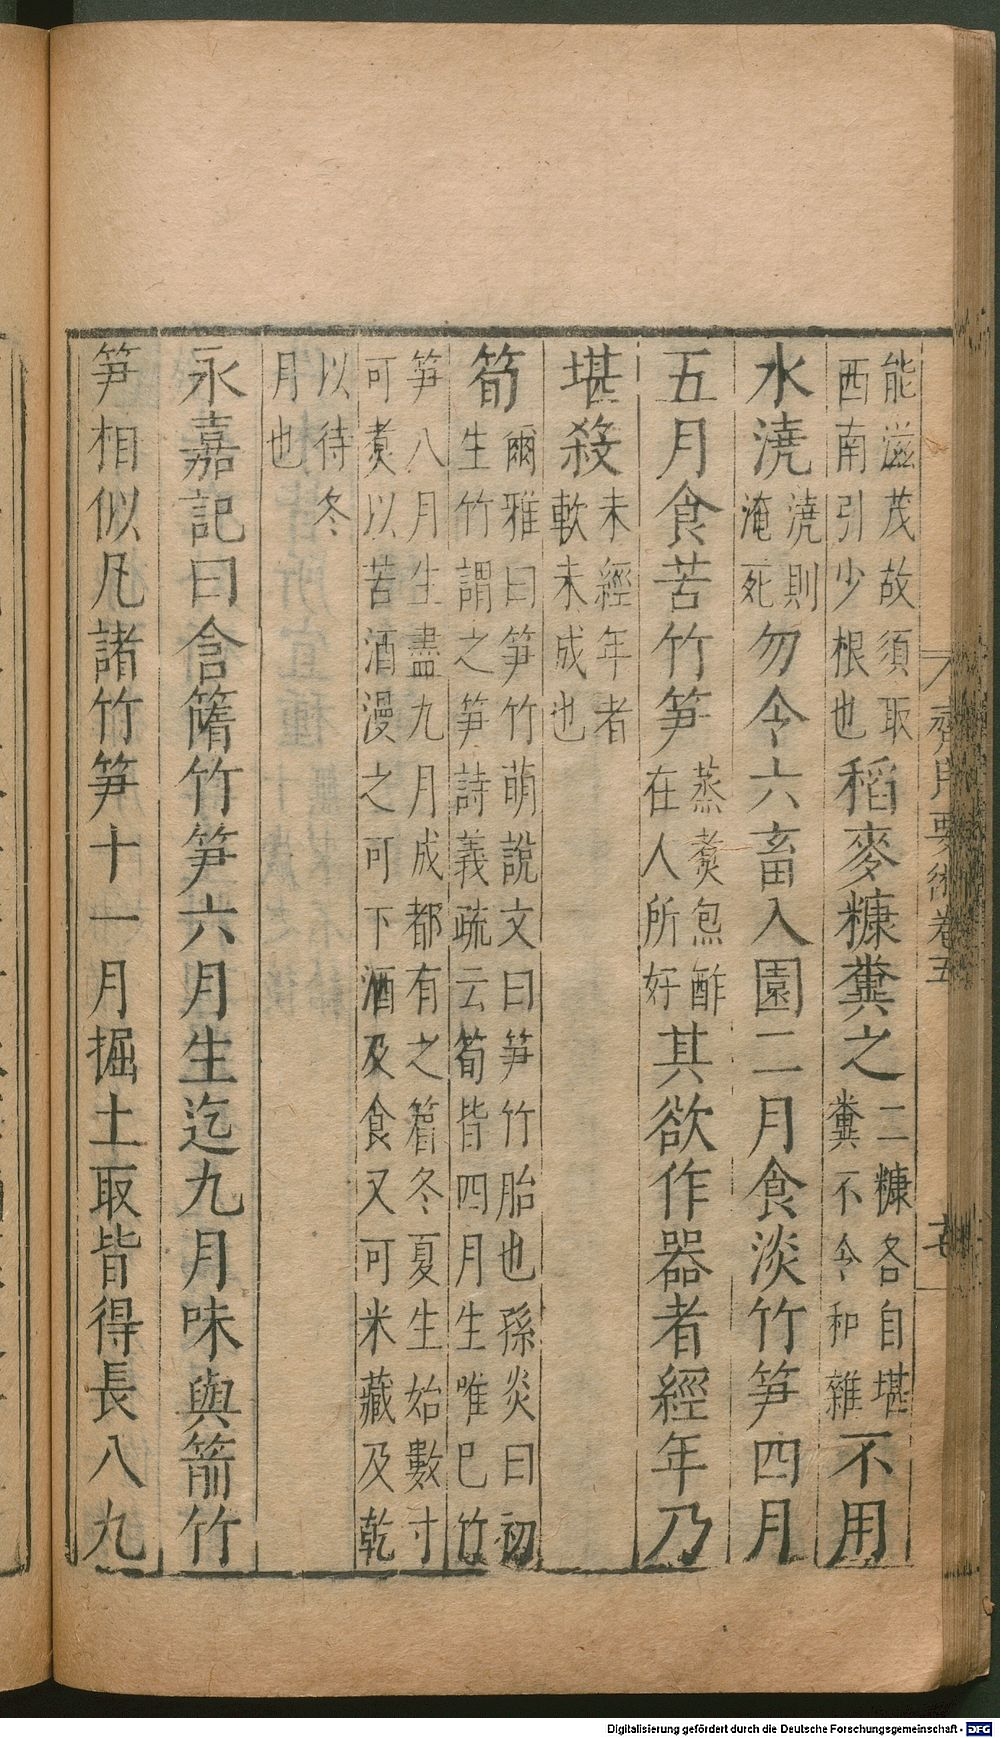 能滋茂故須取
西南引少根也
稻麥糠糞之
二糠各自堪
糞不令和雜
不用
水澆
澆則
淹死
勿令六畜入園二月食淡竹笋四月
五月食苦竹笋
蒸煑炰酢
在人所好
其欲作器者經年乃
堪殺
未經年者
軟未成也
筍
爾雅曰笋竹萌說文曰笋竹胎也孫炎曰初
生竹謂之笋詩義疏云筍皆四月生唯巴竹
笋八月生盡九月成都有之篃冬夏生始數寸
可煑以苦酒漫之可下酒及食又可米藏及乾
以待冬
月也
永嘉記曰含𥳍竹笋六月生迄九月味與箭竹
笋相似凡諸竹笋十一月掘土取皆得長八九
齊民要術卷五
Digitalisierung gefördert durch die Deutsche Forschungsgemeinschaft - DFG